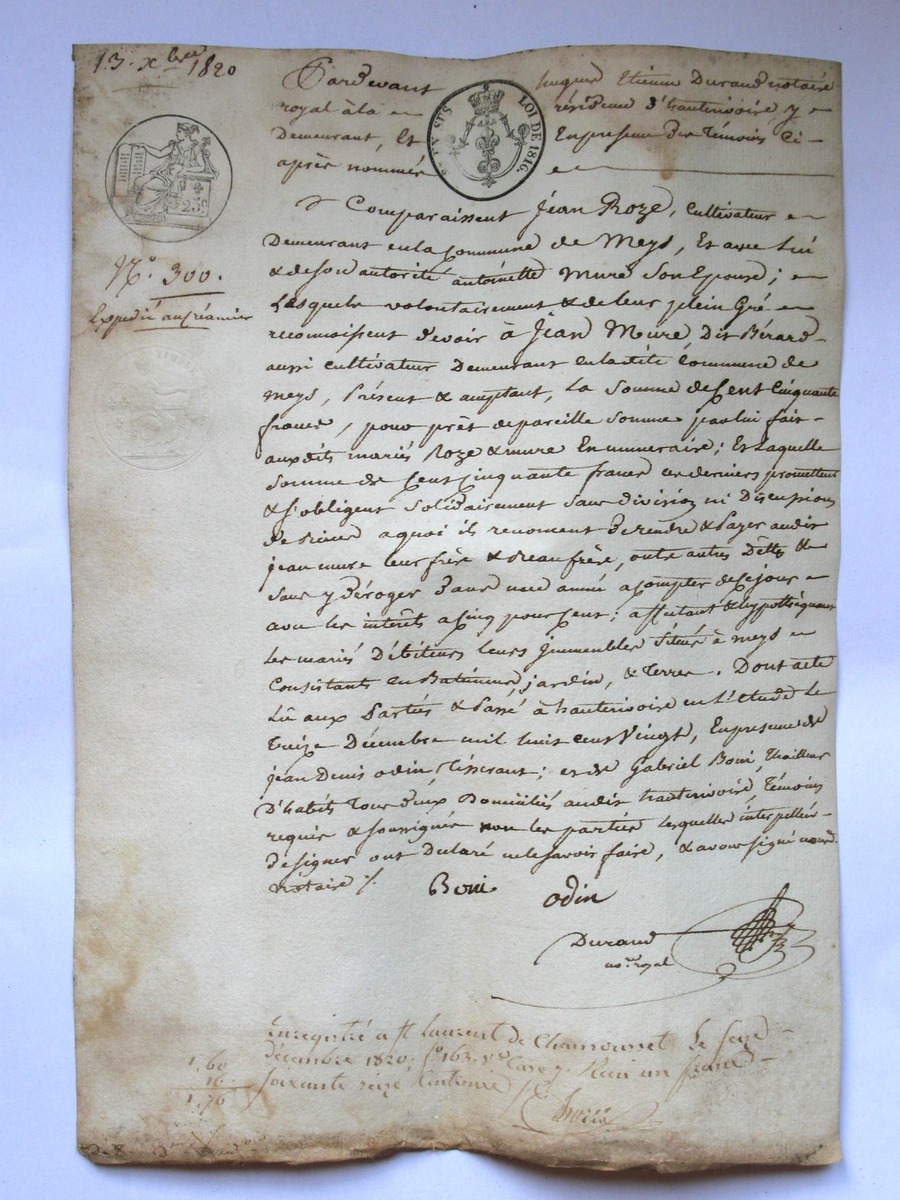 13. Xbre 1820
Pardevant Jacques Etienne Durand notaire
royal à la résidence d'hauterivoire, y
Demeurant, Et En presence des Témoins Ci-
après nommés
EN SUS
LOI DE 1816.
25c
TIMBRE
N.o 300.
Expedié au créancier
Comparaissent Jean Roze, cultivateur
Demeurant en la Commune de Meys, Et avec lui
& de son autorité antoinette Mure son Epouse;
Lesquels volontairement & de leur plein Gré
reconnoissent devoir à Jean Mure, Dit Bérard
aussi cultivateur Demeurant en la dite Commune de
Meys, Présent & acceptant, La Somme de Cent Cinquante
francs, pour prêt de pareille somme par lui fait
auxdits mariés Roze & mure En numeraire; Et Laquelle
Somme de Cent cinquante francs ces derniers promettent
& s'obligent solidairement sans division ni Discussion
De pieces a quoi ils renoncent De rendre & Payer audit
jean mure leur frère & Beau frère, outre autres Dettes &
Sans y Déroger Dans une année a compter de ce jour
avec les intérêts a cinq pour cent; affectant & hypothéquant
Les mariés Débiteurs leurs jmmeubles situés à meys
Consistants en Batiments, jardin, & Terres. Dont acte
Lû aux Parties & Passé à hauterivoire en L'étude Le
Treize Décembre mil huit cent Vingt, En presence de
jean Denis odin, Tisserant; et de Gabriel Boni, Thailleur
D'habits Tous Deux Domiciliés audit hauterivoire, Témoins
requis & soussignés non les parties lesquelles interpellées
de signer ont Déclaré ne le savoir faire, & avons signé nous
Notaire ./.
Boni odin
Durand
nore royal
Enregistré a St Laurent de Chamousset Le seize
décembre 1820. fo 163. vo Case 7. Recu un franc
soixante seize Centimes
1,60
16
1,76